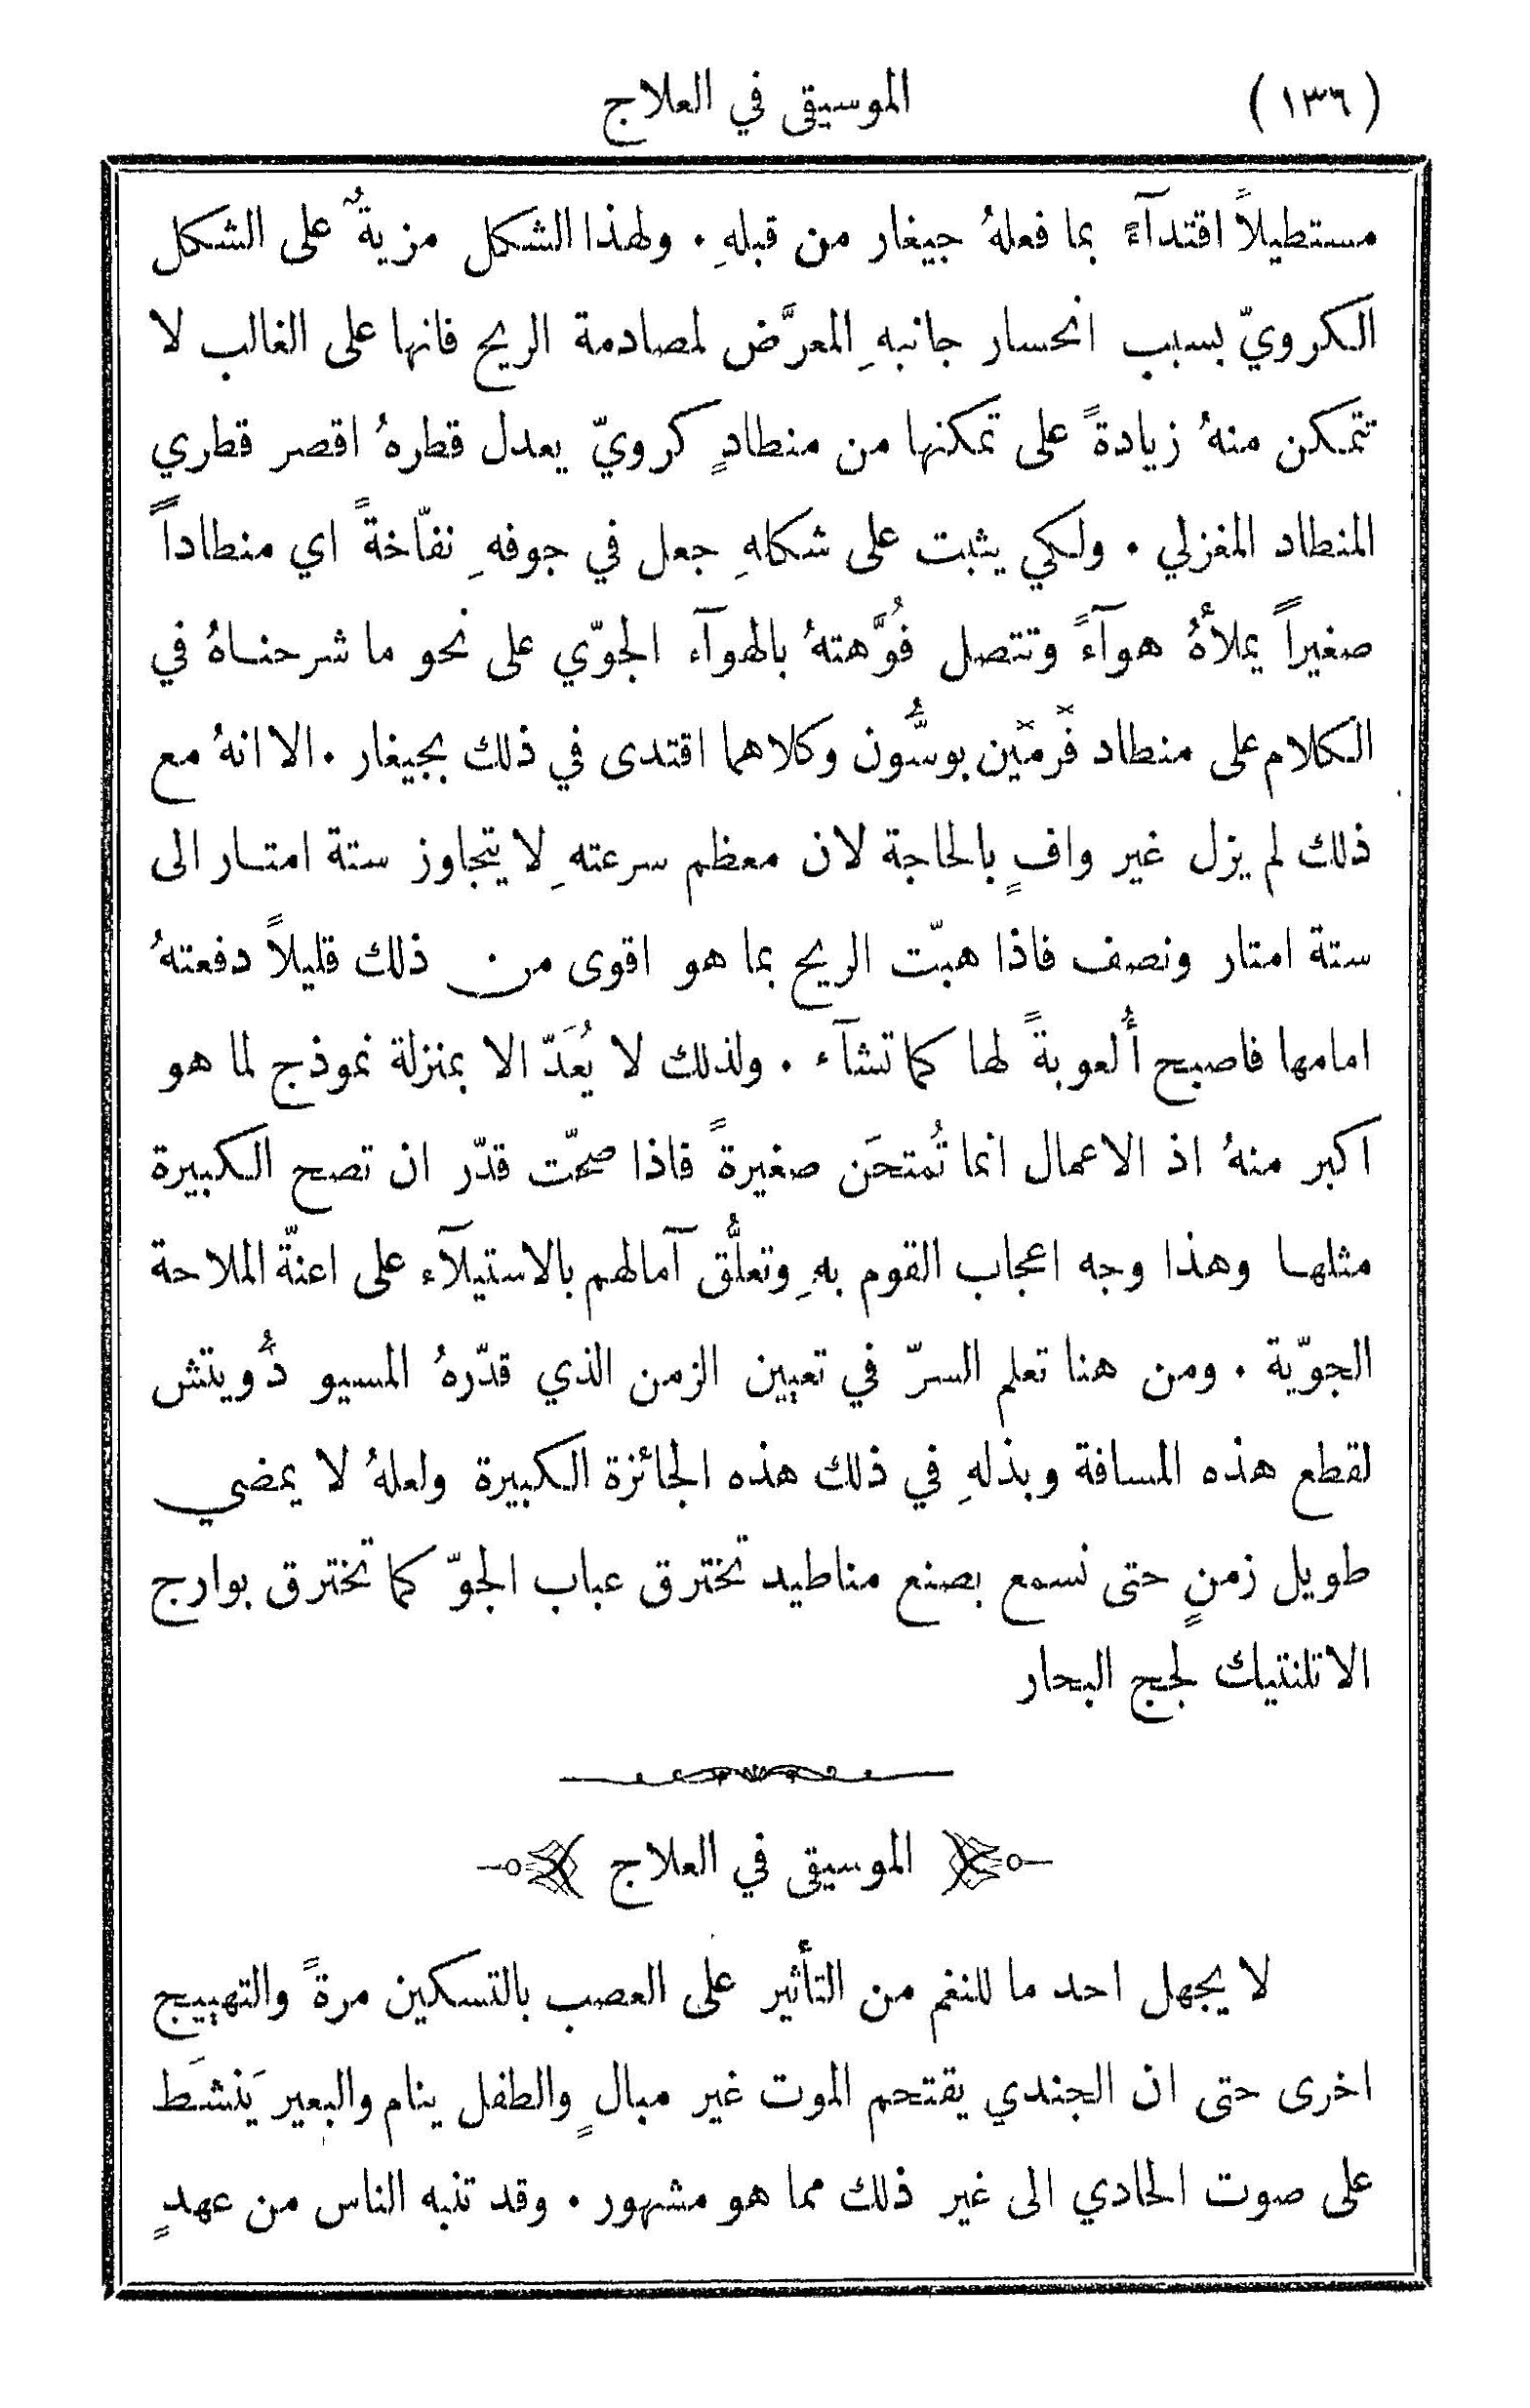 (١٣٦) الموسيقى في العلاج
مستطيلاً اقتدآءً بما فعلهُ جيفار من قبلهِ . ولهذا الشكل مزيةٌ على الشكل
الكرويّ بسبب انحسار جانبهِ المعرَّض لمصادمة الريح فانها على الغالب لا
تتمكن منهُ زيادةً على تمكنها من منطادٍ كرويّ يعدل قطرهُ اقصر قطري
المنطاد المغزلي . ولكي يثبت على شكلهِ جعل في جوفهِ نفّاخةً اي منطاداً
صغيراً يملأهُ هوآءً وتتصل فُوَّهتهُ بالهوآء الجوّي على نحو ما شرحناهُ في
الكلام على منطاد فرمين بوسّون وكلاهما اقتدى في ذلك بجيفار . الا انهُ مع
ذلك لم يزل غير وافٍ بالحاجة لان معظم سرعتهِ لا يتجاوز ستة امتار الى
ستة امتار ونصف فاذا هبّت الريح بما هو اقوى من ذلك قليلاً دفعتهُ
امامها فاصبح أُلعوبةً لها كما تشآء . ولذلك لا يُعَدّ الا بمنزلة نموذج لما هو
اكبر منهُ اذ الاعمال انما تُمتحَن صغيرةً فاذا صحّت قدّر ان تصح الكبيرة
مثلها وهذا وجه اعجاب القوم بهِ وتعلُّق آمالهم بالاستيلآء على اعنّة الملاحة
الجوّية . ومن هنا تعلم السرّ في تعيين الزمن الذي قدّرهُ المسيو دُويتش
لقطع هذه المسافة وبذلهِ في ذلك هذه الجائزة الكبيرة ولعلهُ لا يمضي
طويل زمنٍ حتى نسمع بصنع مناطيد تخترق عباب الجوّ كما تخترق بوارج
الاتلنتيك لجج البحار
الموسيقى في العلاج
لا يجهل احد ما للنغم من التأثير على العصب بالتسكين مرةً والتهييج
اخرى حتى ان الجندي يقتحم الموت غير مبالٍ والطفل ينام والبعير يَنشَط
على صوت الحادي الى غير ذلك مما هو مشهور . وقد تنبه الناس من عهدٍ